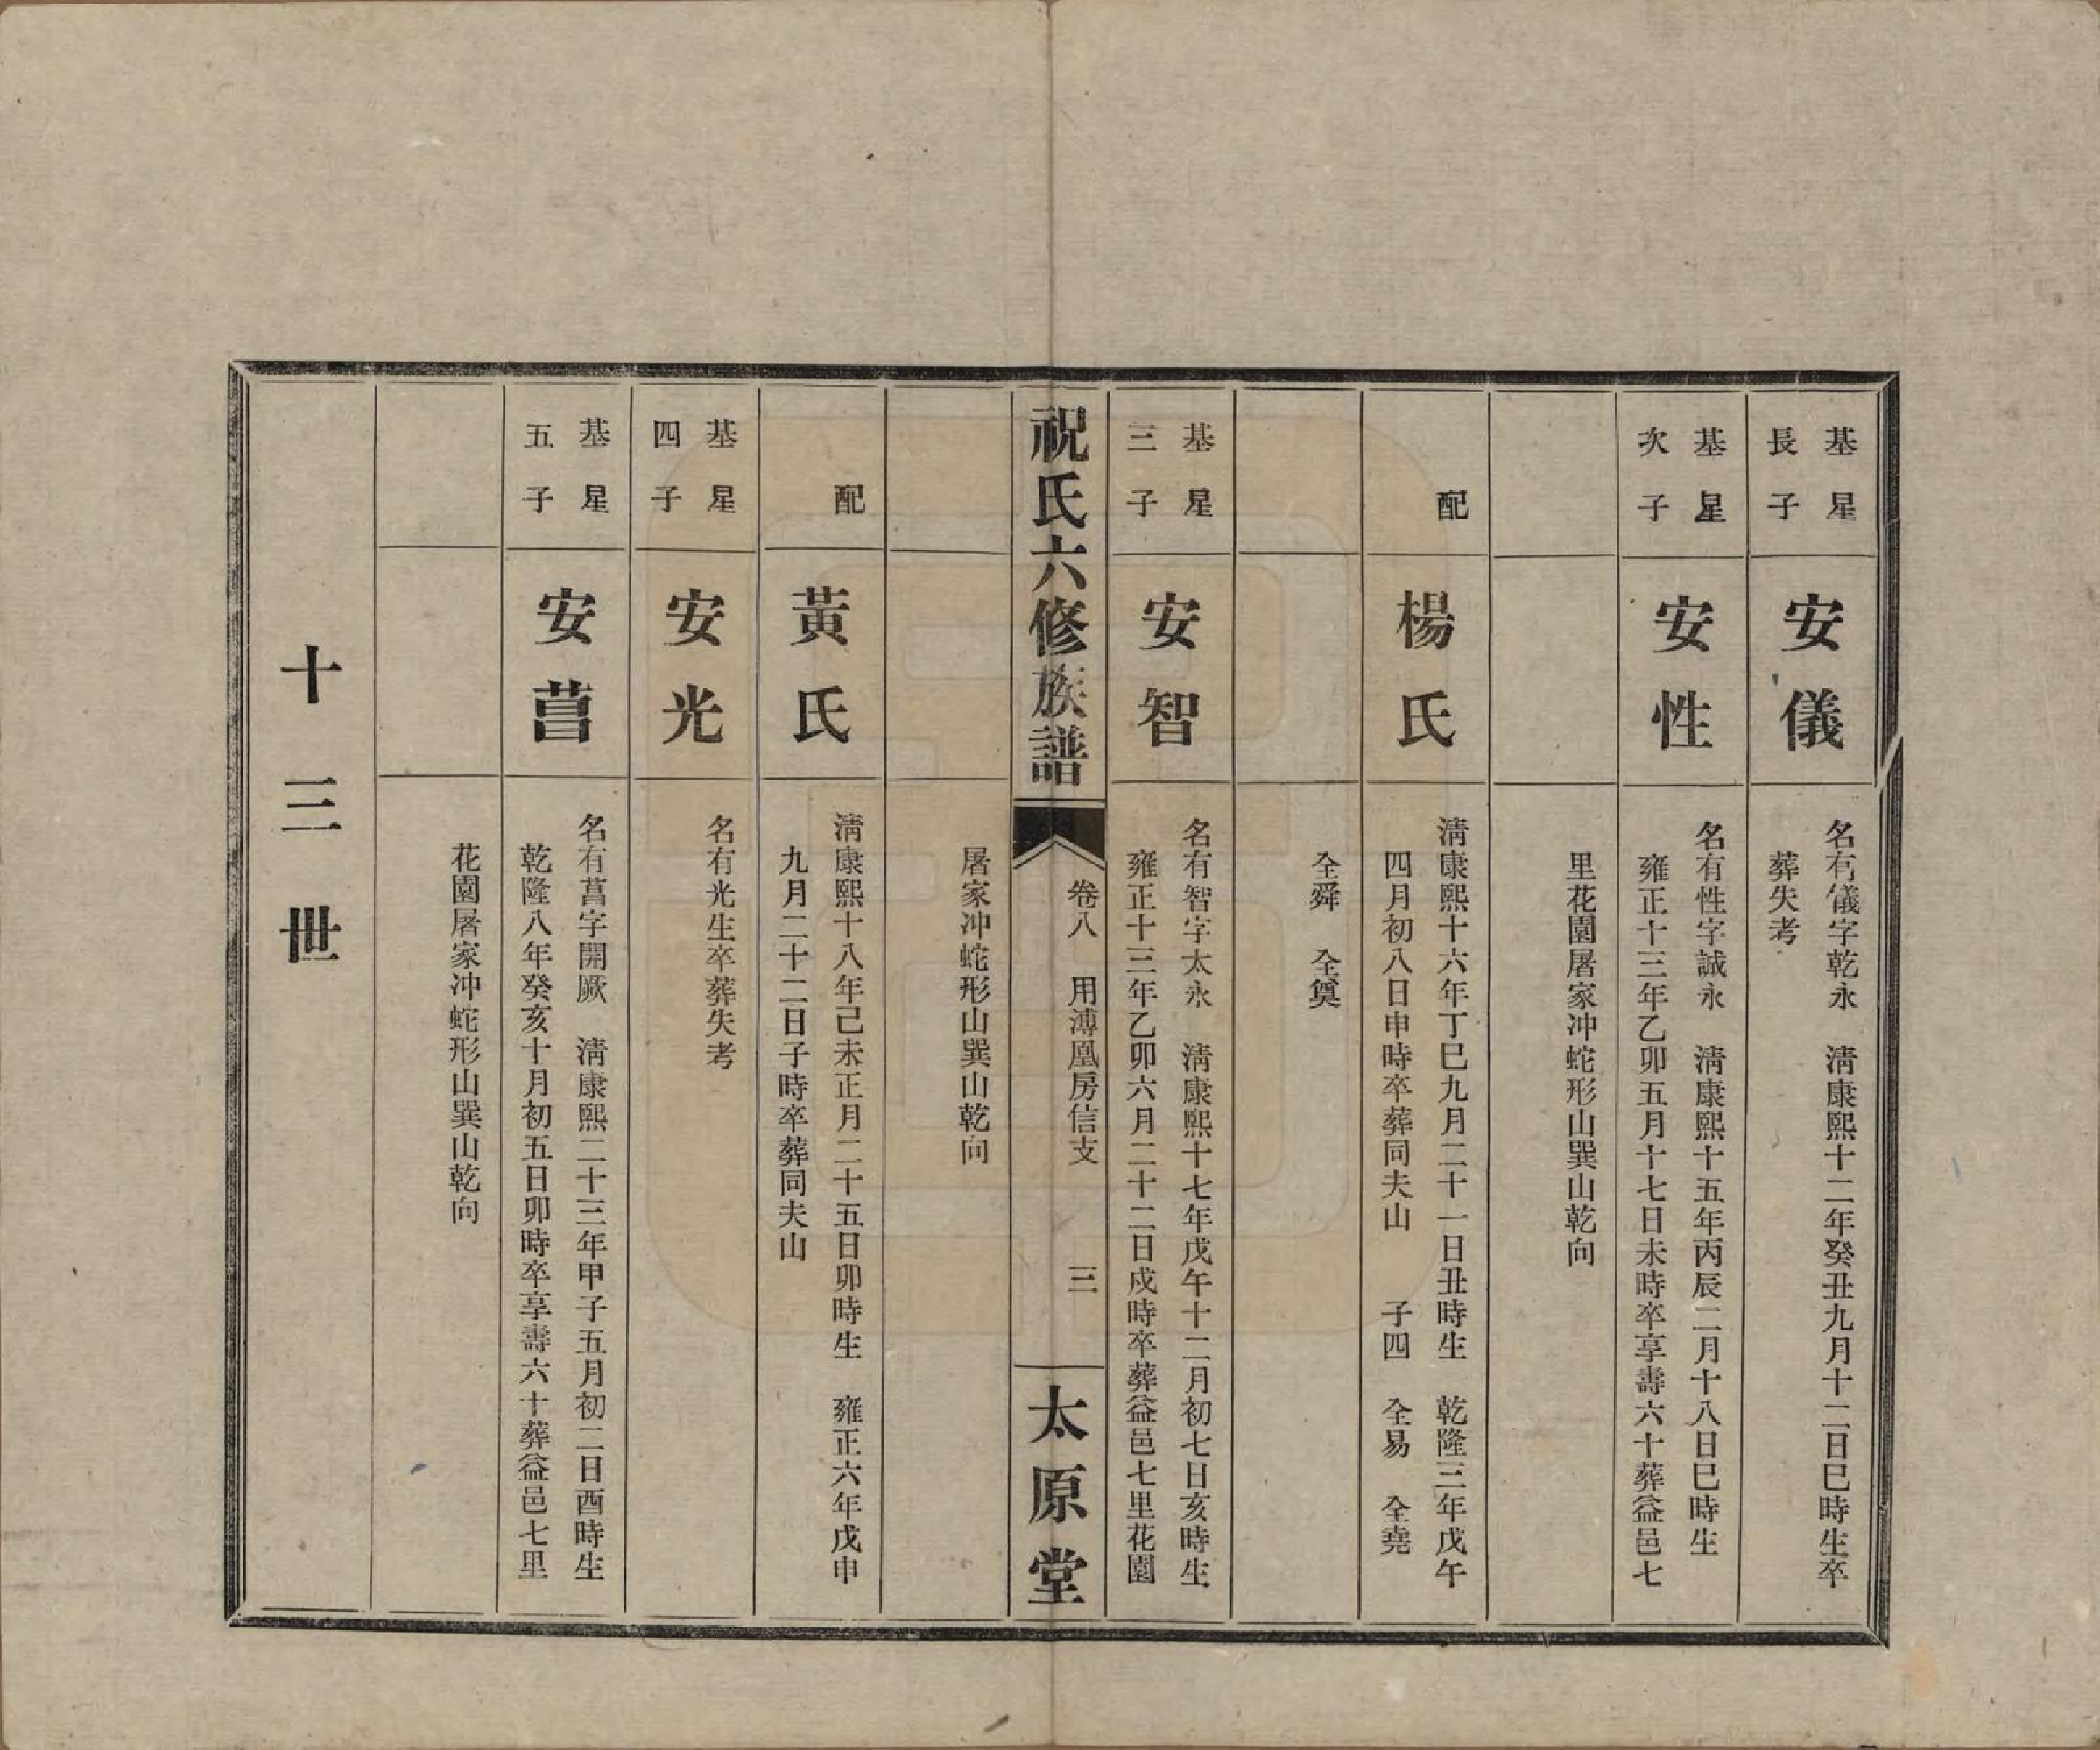 基星
長子
安儀
名有儀字乾永　淸康熙十二年癸丑九月十二日巳時生卒
葬失考
基星
次子
安性
名有性字誠永　淸康熙十五年丙辰二月十八日巳時生
雍正十三年乙卯五月十七日未時卒享壽六十葬益邑七
里花園屠家冲蛇形山巽山乾向
配
楊氏
淸康熙十六年丁巳九月二十一日丑時生　乾隆三年戊午
四月初八日申時卒葬同夫山　　子四　全易　全堯
全舜　全奠
基星
三子
安智
名有智字太永　淸康熙十七年戊午十二月初七日亥時生
雍正十三年乙卯六月二十二日戌時卒葬益邑七里花園
祝氏六修族譜
卷八　用溥凰房信支
三
太原堂
屠家冲蛇形山巽山乾向
配
黃氏
淸康熙十八年己未正月二十五日卯時生　雍正六年戊申
九月二十二日子時卒葬同夫山
基星
四子
安光
名有光生卒葬失考
基星
五子
安菖
名有菖字開厥　淸康熙二十三年甲子五月初二日酉時生
乾隆八年癸亥十月初五日卯時卒享壽六十葬益邑七里
花園屠家冲蛇形山巽山乾向
十三世